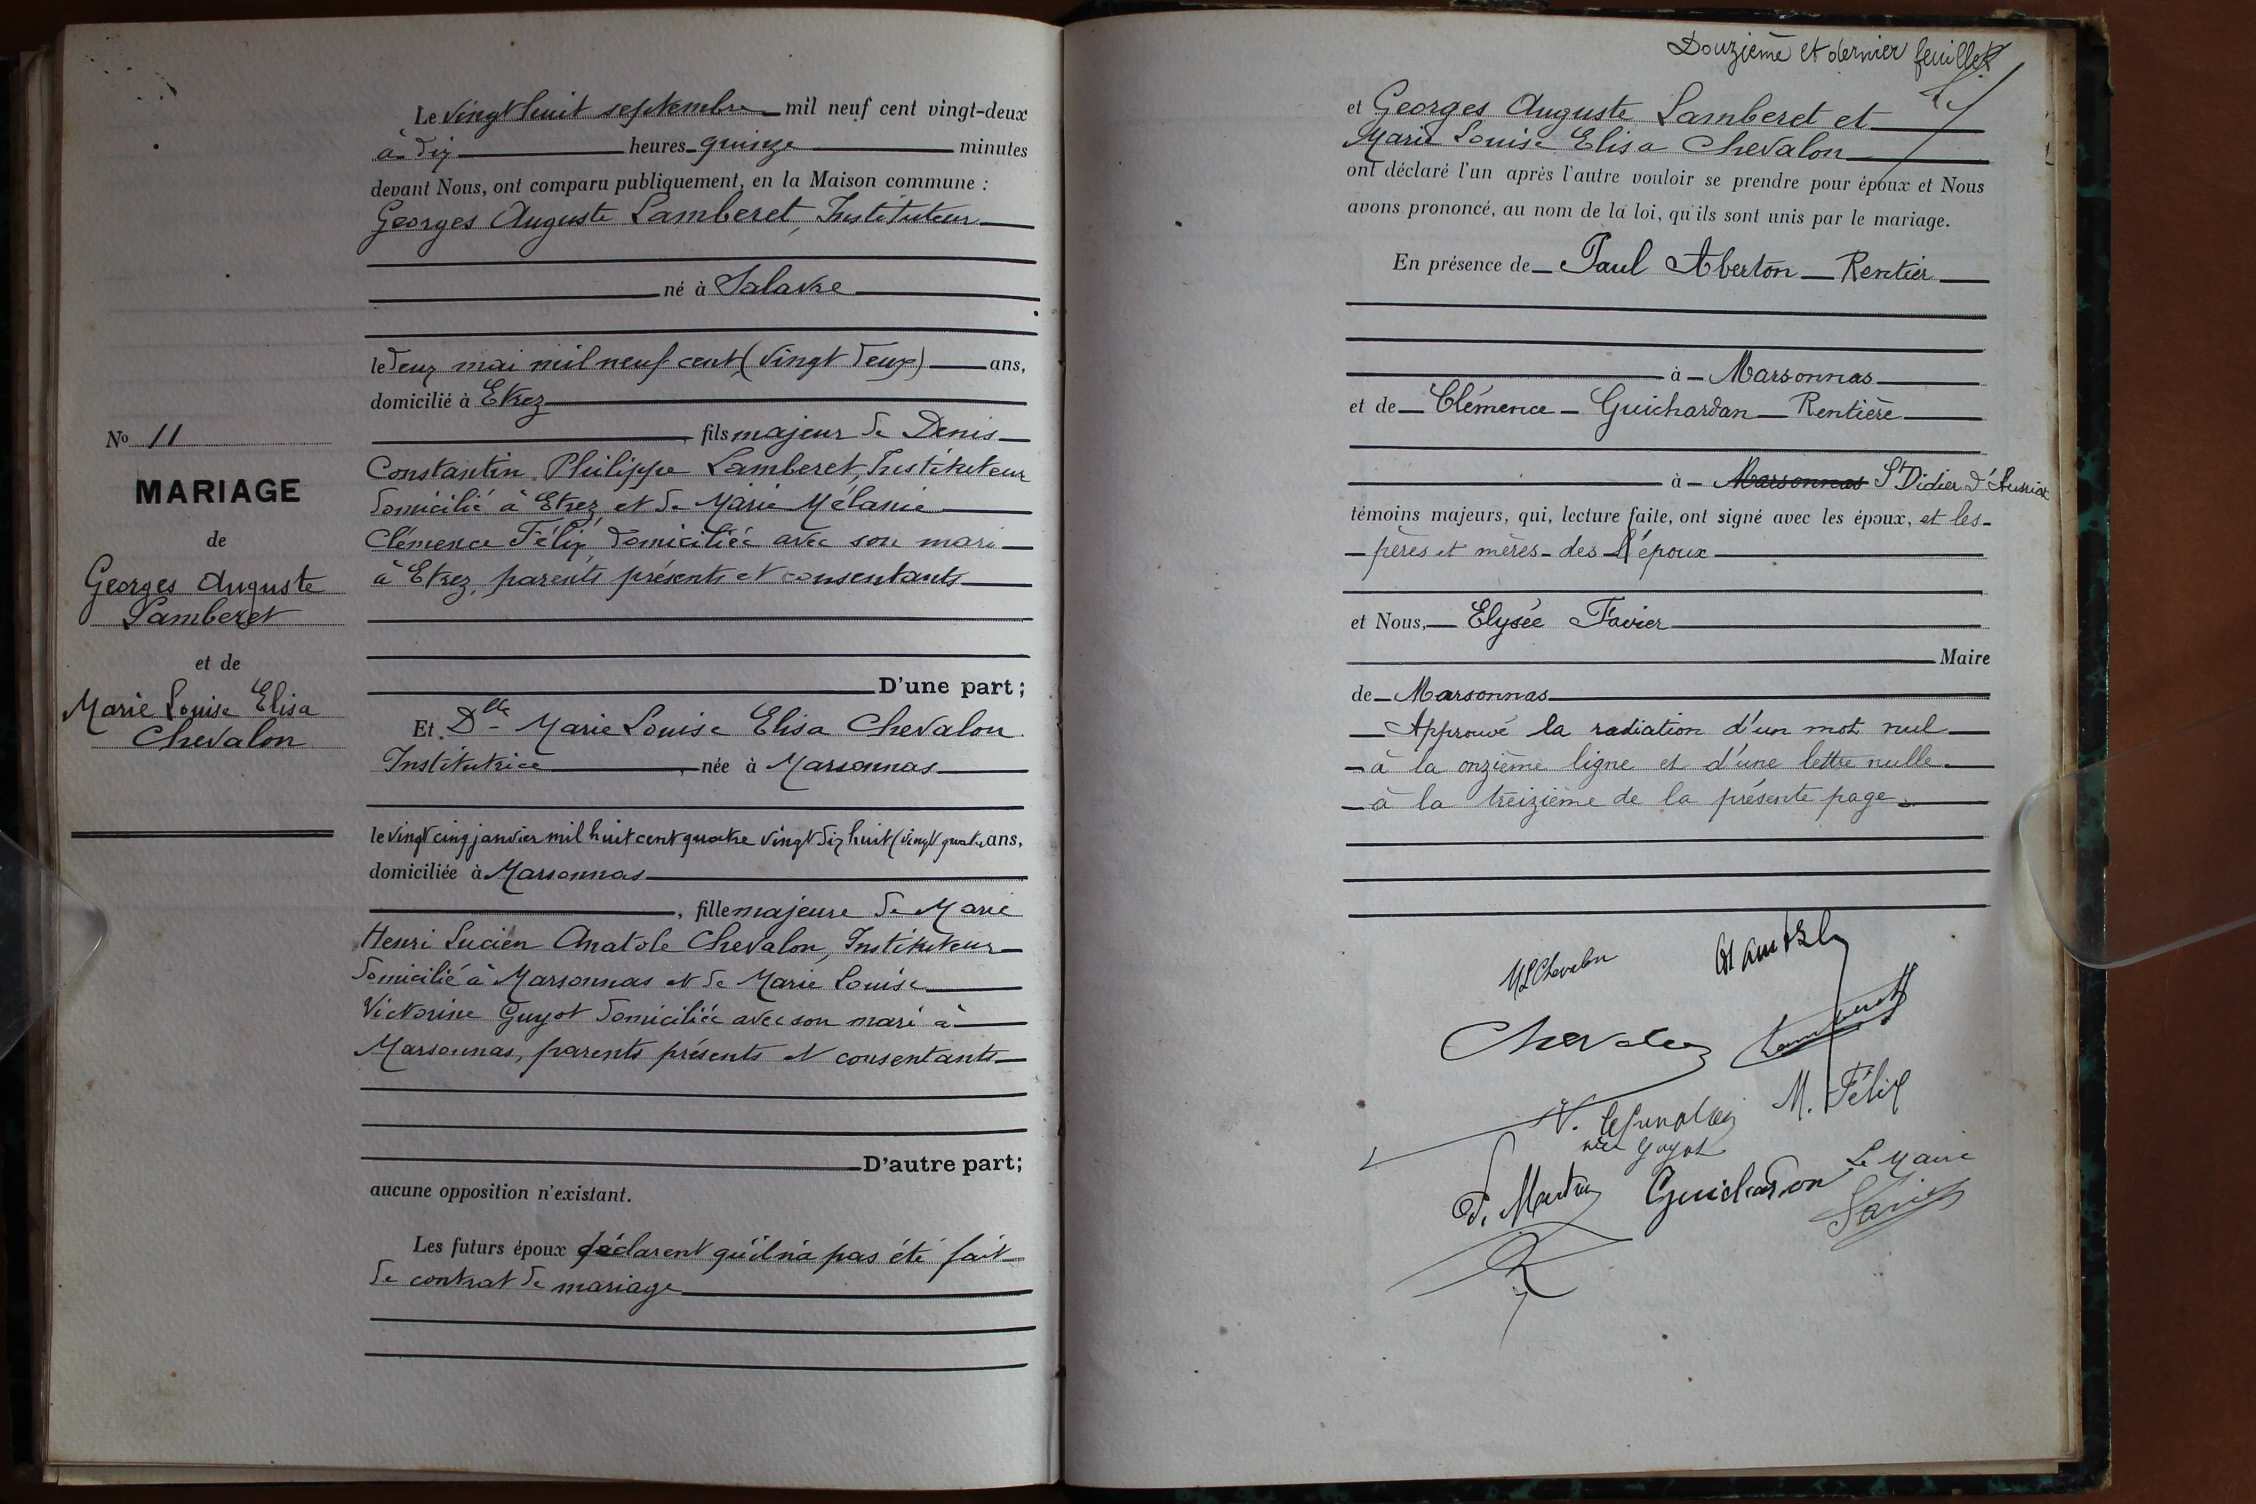 Le vingt huit septembre mil neuf cent vingt-deux
à dix heures quinze minutes
devant Nous, ont comparu publiquement, en la Maison commune :
Georges Auguste Lamberet, Instituteur
né à Salavre
le deux mai mil neuf cent (vingt deux) ans,
domicilié à Etrez
No 11
, fils majeur de Denis
MARIAGE
Constantin Philippe Lamberet, Instituteur
domicilié à Etrez et de Marie Mélanie
de
Clémence Félix, domiciliée avec son mari
Georges Auguste
à Etrez, parents présents et consentants
Lamberet
et de
D'une part ;
Marie Louise Elisa
Et Dlle Marie Louise Elisa Chevalon
Chevalon
Institutrice, née à Marsonnas
le vingt cinq janvier mil huit cent quatre vingt dix huit (vingt quatre ans,
domiciliée à Marsonnas
, fille majeure de Marie
Henri Lucien Anatole Chevalon, Instituteur
domicilié à Marsonnas et de Marie Louise
Victorine Guyot domiciliée avec son mari à
Marsonnas, parents présents et consentants
D'autre part ;
aucune opposition n'existant.
Les futurs époux déclarent qu'il n'a pas été fait
de contrat de mariage
Douzième et dernier feuillet
et Georges Auguste Lamberet et
Marie Louise Elisa Chevalon
ont déclaré l'un après l'autre vouloir se prendre pour époux et Nous
avons prononcé, au nom de la loi, qu'ils sont unis par le mariage.
En présence de Paul Aberton Rentier
à Marsonnas
et de Clémence Guichardan Rentière
à Marsonnas St Didier d'Aussiat
témoins majeurs, qui, lecture faite, ont signé avec les époux, et les
pères et mères des l'époux
et Nous, Elysée Favier
Maire
de Marsonnas
Approuvé la radiation d'un mot nul
à la onzième ligne et d'une lettre nulle
à la treizième de la présente page
ML Chevalon
Chevalon
Lamberet
M. Félix
née Guyot
Le Maire
Guichardon
Favier